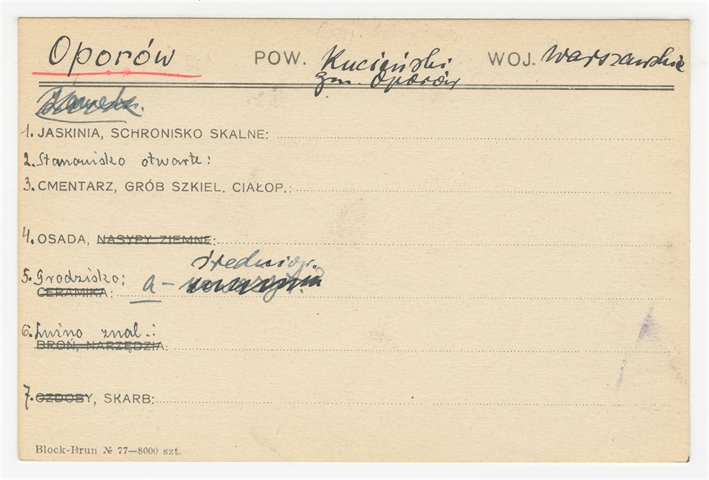 Oporów POW. Kucieński WOJ. Warszawskie
gm. Oporów
1. JASKINIA, SCHRONISKO SKALNE:
2. Stanowisko otwarte:
3. CMENTARZ, GRÓB SZKIEL. CIAŁOP.:
4. OSADA, NASYPY ZIEMNE:
5. Grodzisko: a - średniow.
CERAMIKA:
6. Luźno znal.:
BROŃ, NARZĘDZIA:
7. OZDOBY, SKARB:
Block-Brun № 77—8000 szt.